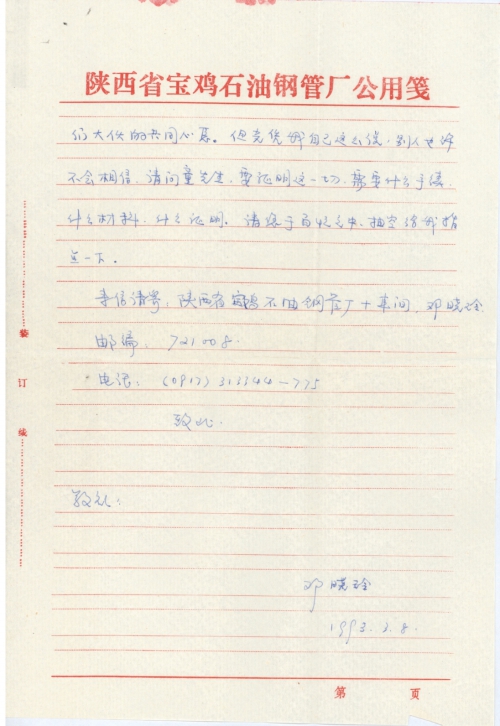 陕西省宝鸡石油钢管厂公用笺
们大伙的共同心愿。但光凭我自己这么说,别人也许
不会相信,请问童先生,要证明这一切,需要什么手续,
什么材料,什么证明。请您于百忙之中,抽空给我指
点一下。
来信请寄,陕西省宝鸡石油钢管厂十车间,邓晓玲
邮编:721008.
电话:(0917)313344-775
致此.
敬礼:
邓晓玲
1993.3.8.
装
订
线
第 页